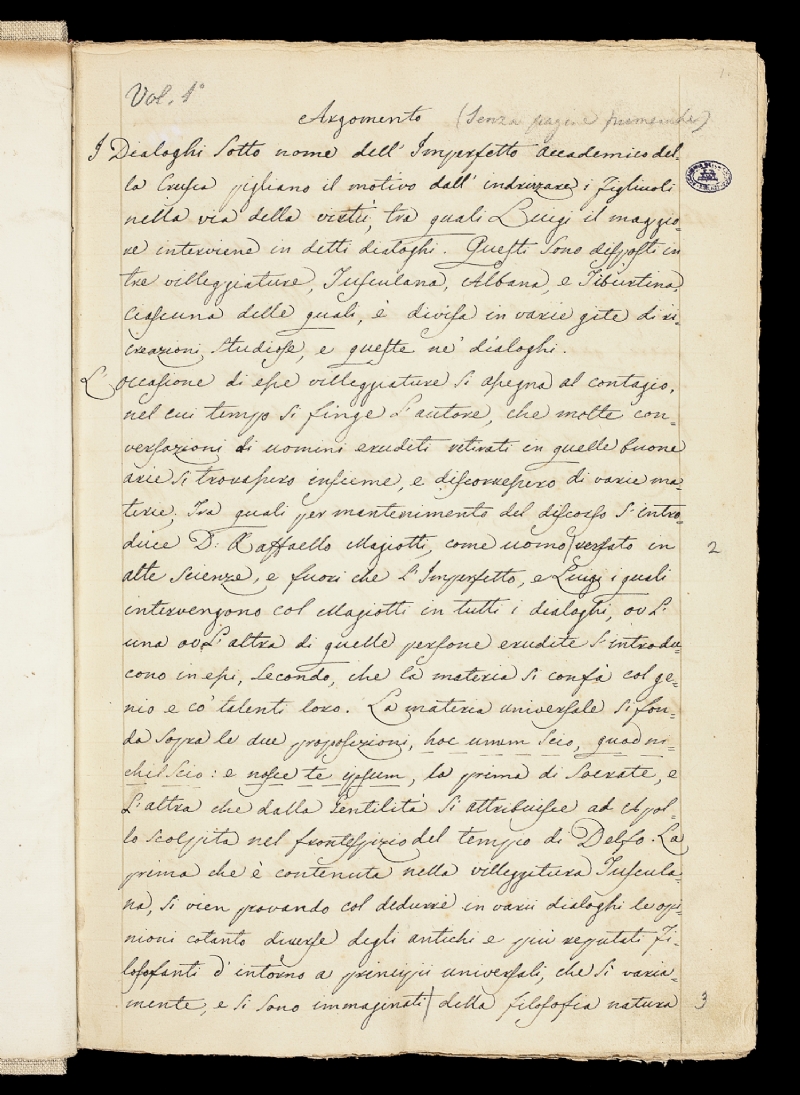 Vol. 1°
Argomento (Senza pagine numerate)
I Dialoghi sotto nome dell' Imperfetto Accademico del-
la Crusca pigliano il motivo dall' indrizzare i figliuoli
nella via della virtù, tra quali Luigi il maggio-
re interviene in detti dialoghi. Questi sono disposti in
tre villeggiature, Tusculana, Albana, e Tiburtina,
ciascuna delle quali, è divisa in varie gite di ri-
creazioni studiose, e queste ne' dialoghi.
L'occasione di esse villeggiature si assegna al contagio,
nel cui tempo si finge l'autore, che molte con-
versazioni di uomini eruditi retirati in quelle buone
arie si trovassero insieme, e discorressero di varie ma-
terie, Tra quali per mantenimento del discorso s'intro-
duce D: Raffaello Magiotti, come uomo | versato in 2
alte scienze, e fuori che l'Imperfetto, e Luigi i quali
intervengono col Magiotti in tutti i dialoghi, ov l'
una ov l'altra di quelle persone erudite s'introdu-
cono in essi, secondo, che la materia si confà col ge-
nio e co' talenti loro. La materia universale si fon-
da sopra le due proposizioni, hoc unum scio, quod ni-
chil scio: e nosce te ipsum, la prima di Socrate, e
l'altra che dalla Gentilità si attribuisce ad Apol-
lo scolpita nel frontespizio del tempio di Delfo. La
prima che è contenuta nella villeggitura Tuscula-
na, si vien provando col dedurre in varii dialoghi le opi-
nioni cotanto diverse degli antichi e più reputati Fi-
losofanti d'intorno a principii universali, che si varia-
mente, e si sono immaginati | della filosofia natura 3